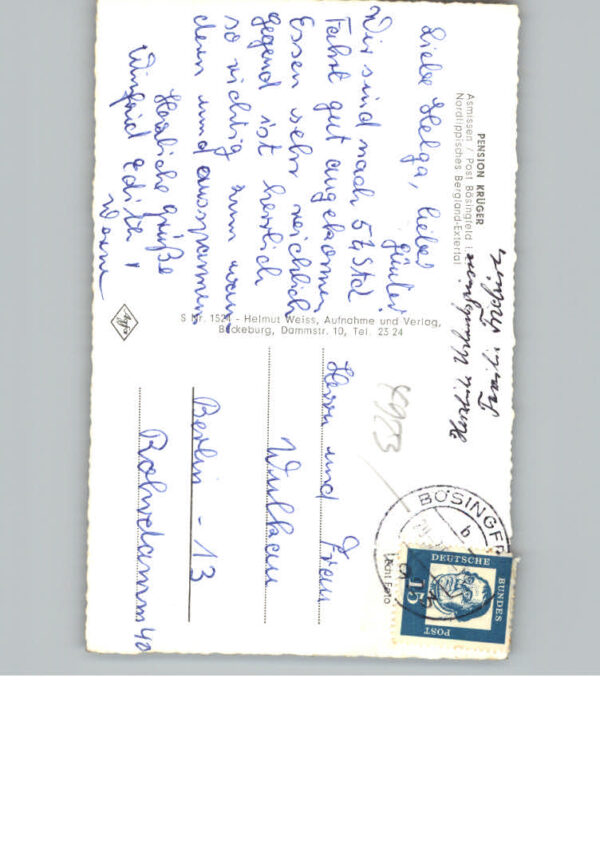 PENSION KRÜGER
Asmissen / Post Bösingfeld i. L.
Nordlippisches Bergland-Extertal
Liebe Helga, lieber
Günter!
Wir sind nach 5½ Std
Fahrt gut angekommen
Essen sehr reichlich
Gegend ist herrlich
so richtig zum wan
dern und ausspannen
Herzliche Grüße
Winfried Edith
S Nr. 1524 - Helmut Weiss, Aufnahme und Verlag,
Bückeburg, Dammstr. 10, Tel. 23 24
Agfa
K9283
Herrn und Frau
Wulkau
Berlin - 13
Rohrdamm 40
BÖSINGF
b
DEUTSCHE
BUNDES
POST
15
Echt Foto